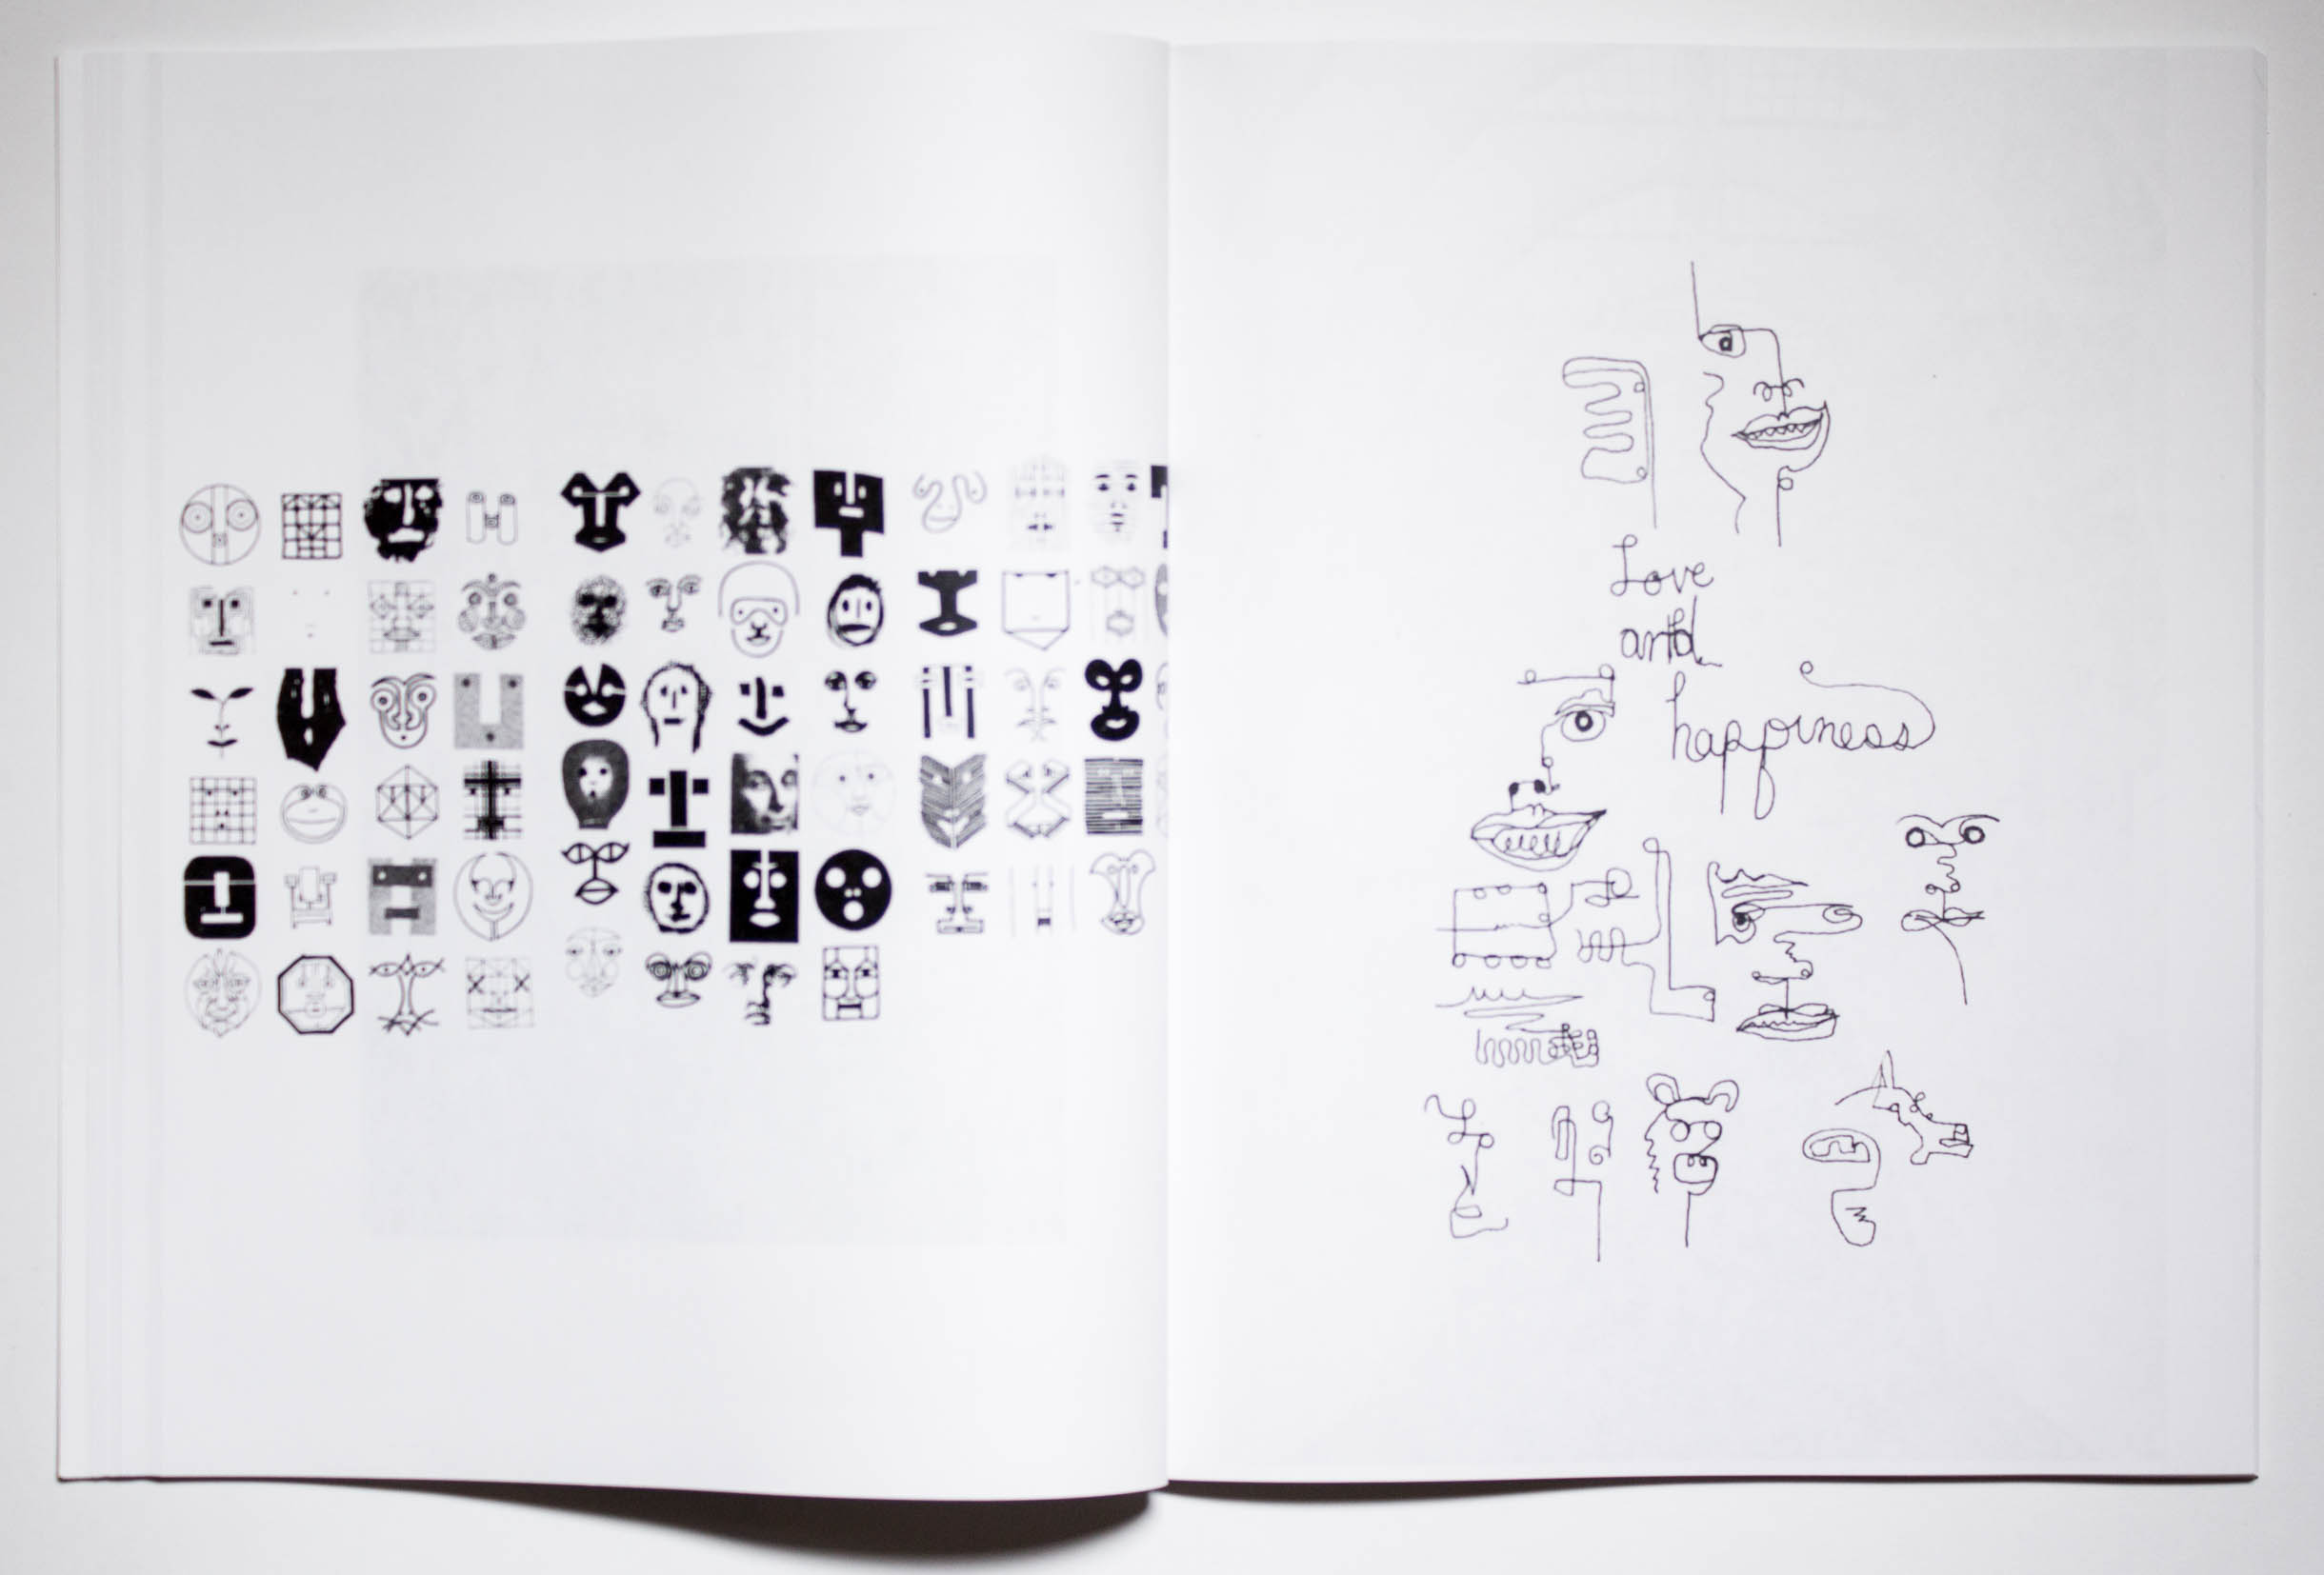 Love
and
happiness